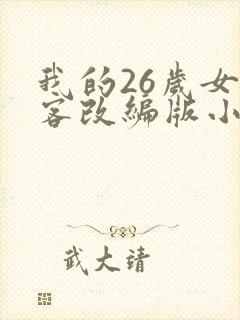 我的26岁女
客改编版小
武大靖